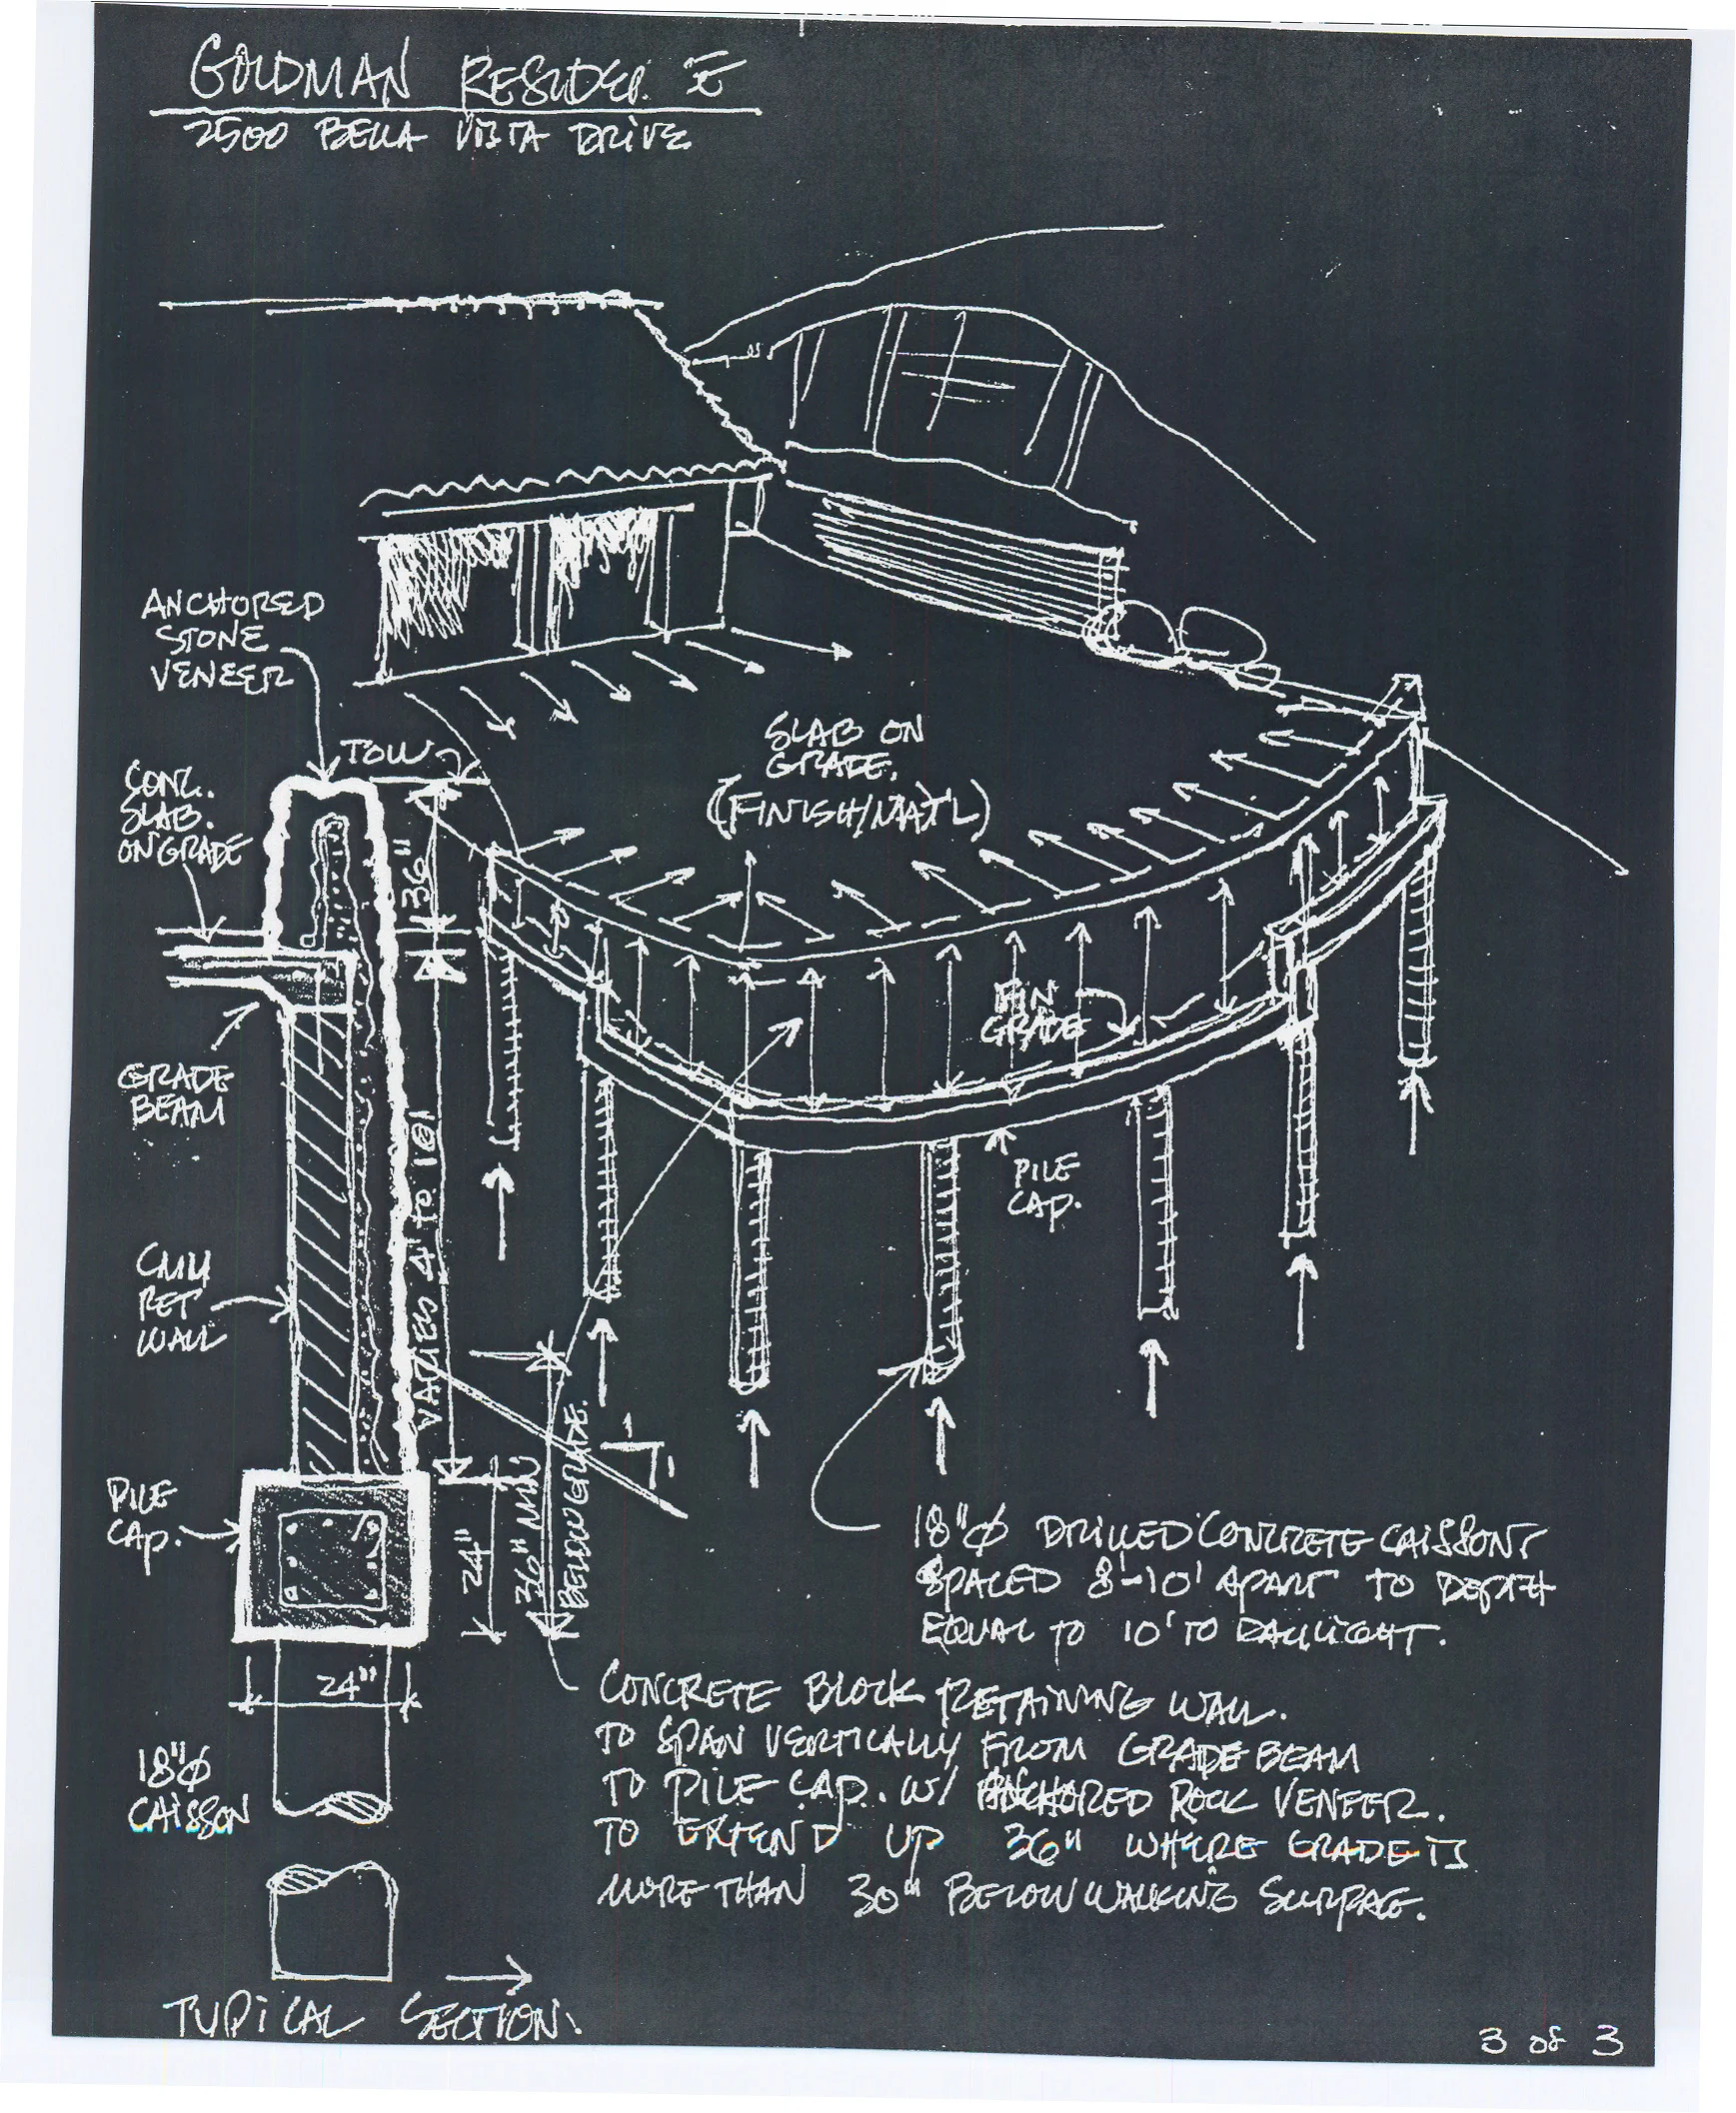 GOLDMAN RESIDEN E
2500 BELLA VISTA DRIVE
ANCHORED
STONE
VENEER
TOW
CONC.
SLAB.
ON GRADE
36"
SLAB ON
GRADE.
(FINISH/MAT'L)
FIN
GRADE
GRADE
BEAM
VARIES 4' to 10'
PILE
CAP.
CMU
RET
WALL
1
1
PILE
CAP.
24"
36" MIN
BELOW GRADE.
24"
18"ø
CAISSON
18"ø DRILLED CONCRETE CAISSONS
SPACED 8'-10' APART TO DEPTH
EQUAL TO 10' TO DAYLIGHT.
CONCRETE BLOCK RETAINING WALL.
TO SPAN VERTICALLY FROM GRADE BEAM
TO PILE CAP. W/ ANCHORED ROCK VENEER.
TO EXTEND UP 36" WHERE GRADE IS
MORE THAN 30" BELOW WALKING SURFACE.
TYPICAL SECTION.
3 of 3